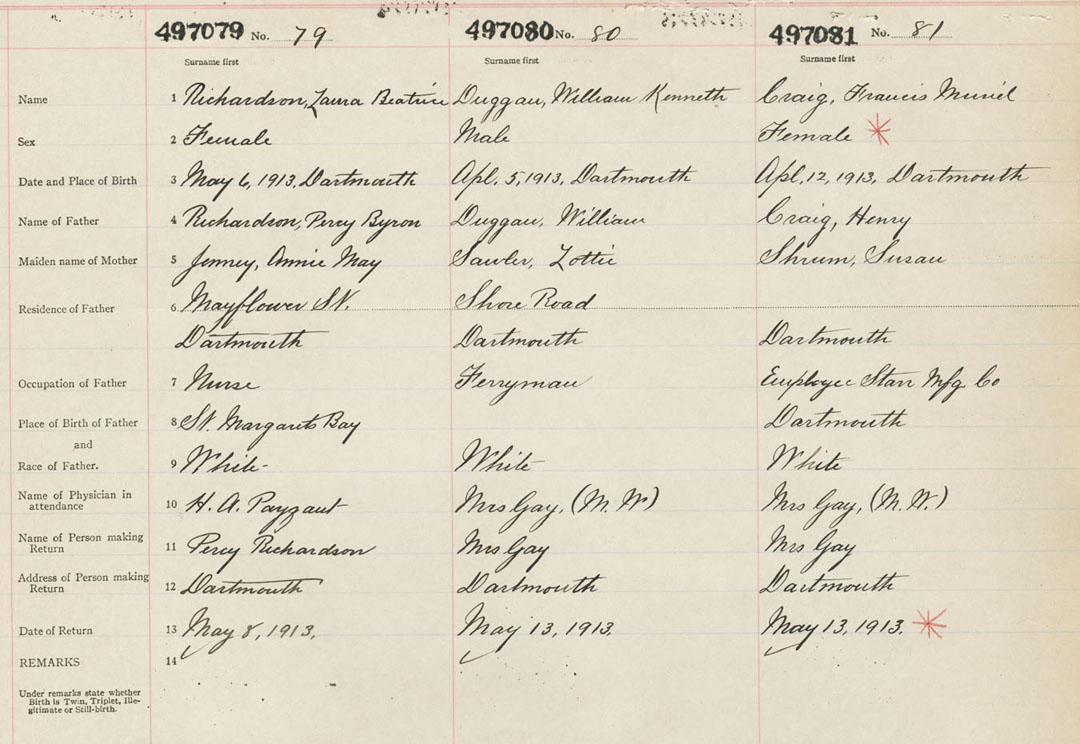 497079 No. 79 497080 No. 80 497081 No. 81
Surname first Surname first Surname first
Name 1 Richardson, Laura Beatrice Duggan, William Kenneth Craig, Francis Muriel
Sex 2 Female Male Female *
Date and Place of Birth 3 May 6, 1913, Dartmouth Apl. 5, 1913, Dartmouth Apl. 12, 1913, Dartmouth
Name of Father 4 Richardson, Percy Byron Duggan, William Craig, Henry
Maiden name of Mother 5 Jenney, Annie May Sawler, Lottie Shrum, Susan
Residence of Father 6 Mayflower St. Shore Road
Dartmouth Dartmouth Dartmouth
Occupation of Father 7 Nurse Ferryman Employee Starr Mfg Co
Place of Birth of Father 8 St. Margarets Bay Dartmouth
and
Race of Father. 9 White- White White
Name of Physician in
attendance 10 H. A. Payzant Mrs Gay, (M. W) Mrs Gay, (M. W.)
Name of Person making
Return 11 Percy Richardson Mrs Gay Mrs Gay
Address of Person making
Return 12 Dartmouth Dartmouth Dartmouth
Date of Return 13 May 8, 1913. May 13, 1913. May 13, 1913. *
REMARKS 14
Under remarks state whether
Birth is Twin, Triplet, Ille-
gitimate or Still-birth.